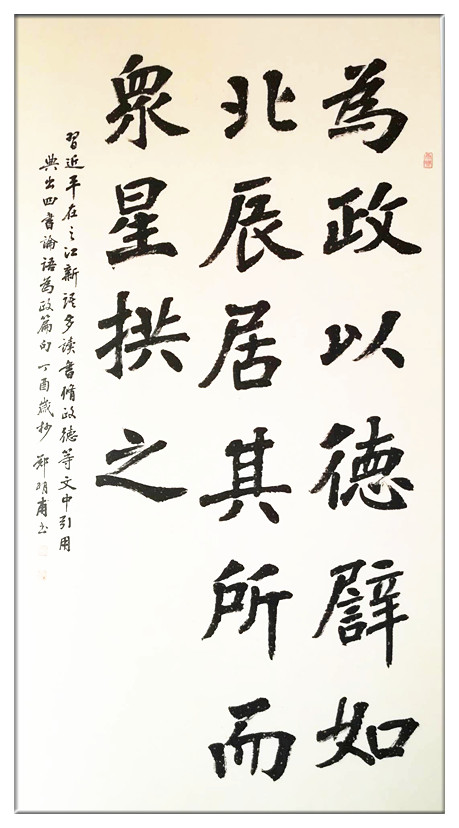 為政以德譬如
北辰居其所而
衆星拱之
習近平在之江新語多读書脩政德等文中引用
典出四書論語為政篇句 丁酉歲杪 鄭明甫书